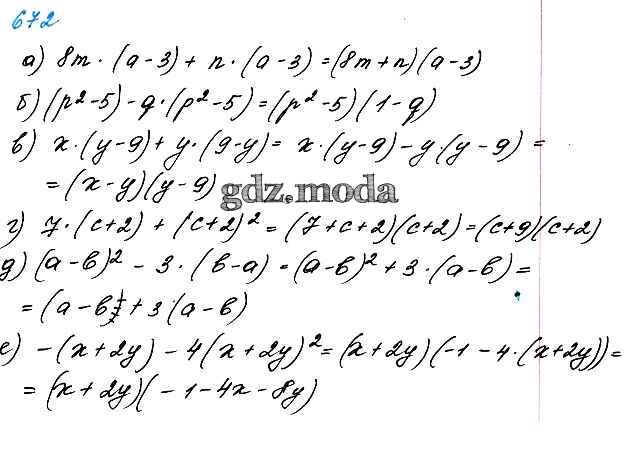 672
а) 8m · (a-3) + n · (a-3) = (8m+n)(a-3)
б) (p²-5) - q · (p²-5) = (p²-5)(1-q)
в) x · (y-9) + y · (9-y) = x · (y-9) - y · (y-9) =
= (x-y)(y-9)
gdz.moda
г) 7 · (c+2) + (c+2)² = (7+c+2)(c+2) = (c+9)(c+2)
д) (a-b)² - 3 · (b-a) = (a-b)² + 3 · (a-b) =
= (a-b + 3 · (a-b)
е) -(x+2y) - 4(x+2y)² = (x+2y)(-1-4 · (x+2y)) =
= (x+2y)(-1-4x-8y)